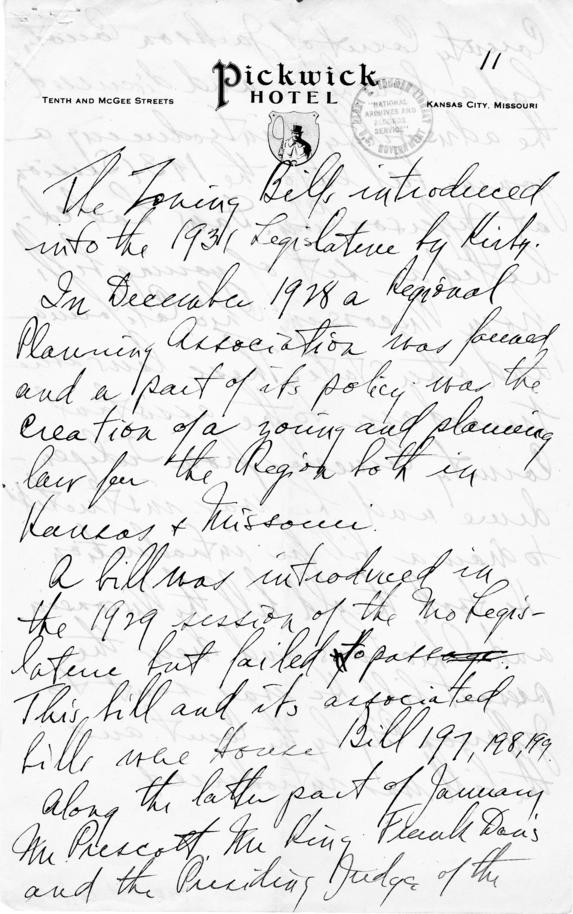 11
Pickwick
HOTEL
TENTH AND MCGEE STREETS
KANSAS CITY, MISSOURI
"NATIONAL
ARCHIVES AND
RECORDS
SERVICE"
U.S. GOVERNMENT
The Zoning Bills introduced
into the 1931 Legislature by Kirby.
In December 1928 a Regional
Planning Association was formed
and a part of its policy was the
creation of a zoning and planning
law for the Region both in
Kansas & Missouri.
A bill was introduced in
the 1929 session of the Mo Legis-
lature but failed to passage.
This bill and its associated
bills were House Bill 197, 198, 199.
Along the latter part of January
Mr Prescott, Mr King, Frank Davis
and the Presiding Judge of the